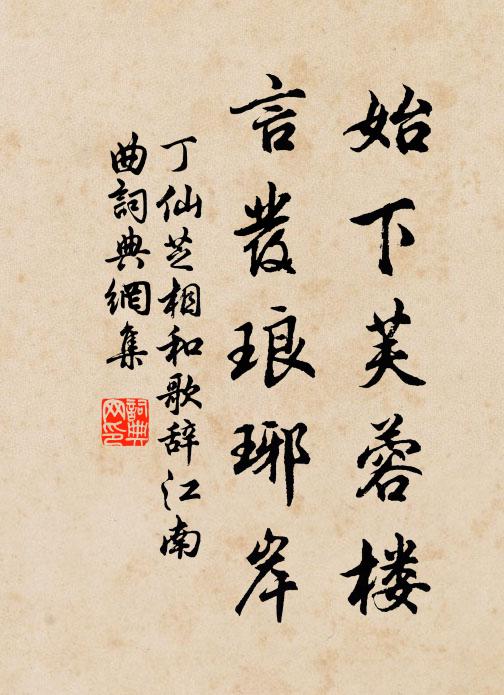 始下芙蓉楼
言發琅琊岸
丁仙芝相和歌辞江南
曲詞典網集
詞典网印